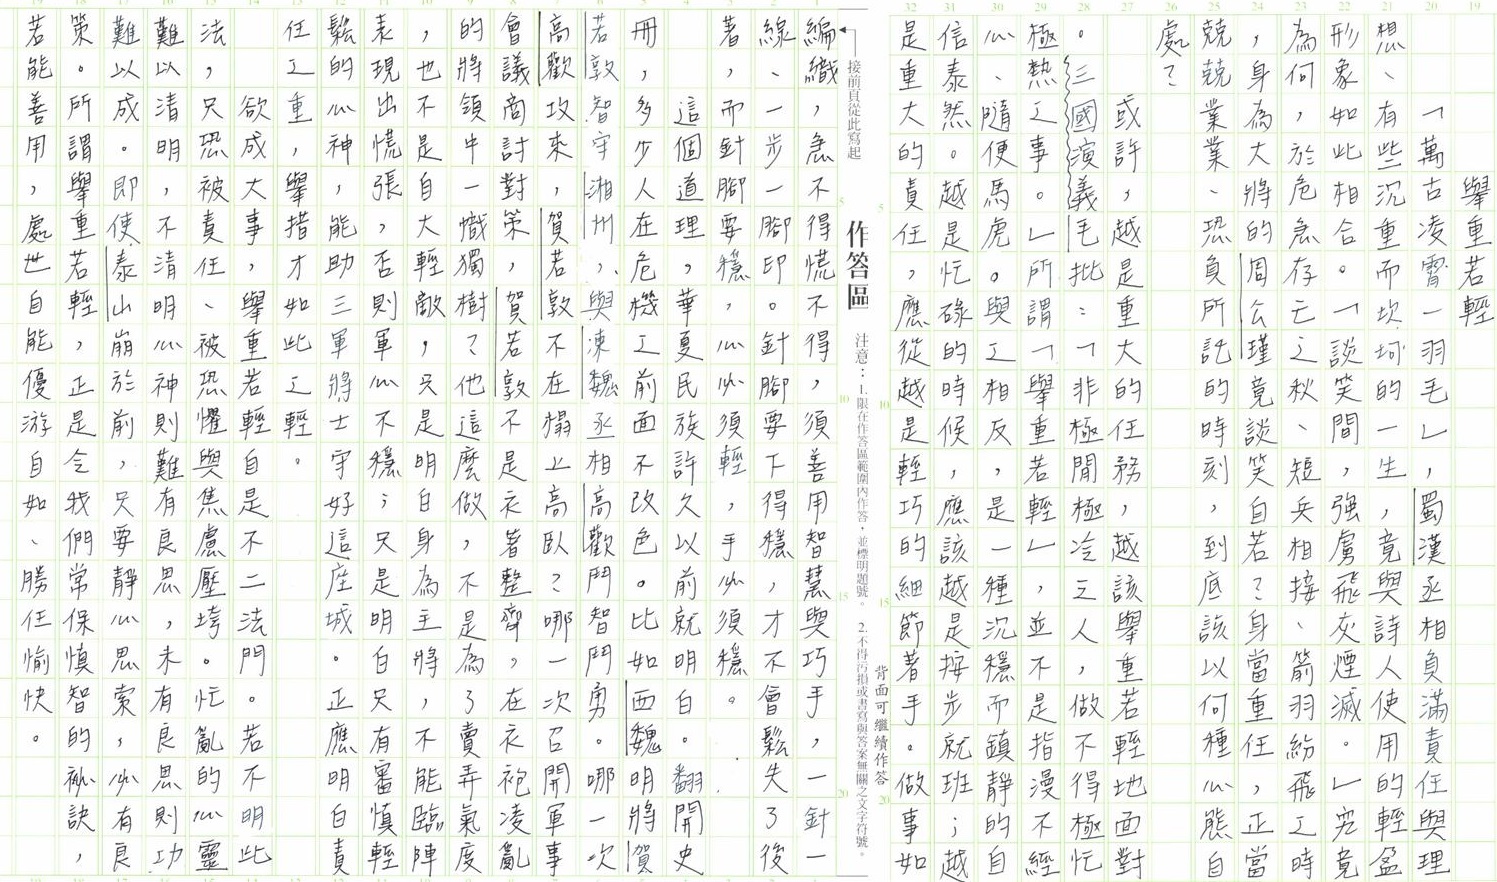 舉重若輕
「萬古凌霄一羽毛」,蜀漢丞相負滿責任與理
想、有些沉重而坎坷的一生,竟與詩人使用的輕盈
形象如此相合。「談笑間,強虜飛、灰煙滅。」究竟
為何,於危急存亡之秋、短兵相接、箭羽紛飛之時
,身為大將的周公瑾竟談笑自若?身當重任,正當
兢兢業業、恐負所託的時刻,到底該以何種心態自
處?
或許,越是重大的任務,越該舉重若輕地面對
。三國演義毛批:「非極閒極冷之人,做不得極忙
極熱之事。」所謂「舉重若輕」,並不是指漫不經
心、隨便馬虎。與之相反,是一種沉穩而鎮靜的自
信泰然。越是忙碌的時候,應該越是按步就班;越
是重大的責任,應從越是輕巧的細節著手。做事如
背面可繼續作答
接前頁從此寫起
作答區
注意:1.限在作答區範圍內作答,並標明題號。 2.不得污損或書寫與答案無關之文字符號。
編織,急不得慌不得,須善用智慧與巧手,一針一
線、一步一腳印。針腳要下得穩,才不會鬆失了後
著,而針腳要穩,心必須輕,手必須穩。
這個道理,華夏民族許久以前就明白。翻開史
冊,多少人在危機之前面不改色。比如西魏明將賀
若敦智守湘州,與涑魏丞相高歡鬥智鬥勇。哪一次
高歡攻來,賀若敦不在榻上高臥?哪一次召開軍事
會議商討對策,賀若敦不是衣著整齊,在衣袍凌亂
的將領中一幟獨樹?他這麼做,不是為了賣弄氣度
,也不是自大輕敵,只是明白身為主將,不能臨陣
表現出慌張,否則軍心不穩;只是明白只有審慎輕
鬆的心神,能助三軍將士守好這座城。正應明白責
任之重,舉措才如此之輕。
欲成大事,舉重若輕自是不二法門。若不明此
法,只恐被責任、被恐懼與焦慮壓垮。忙亂的心靈
難以清明,不清明心神則難有良思,未有良思則功
難以成。即使泰山崩於前,只要靜心思索,必有良
策。所謂舉重若輕,正是令我們常保慎智的祕訣,
若能善用,處世自能優游自如、勝任愉快。